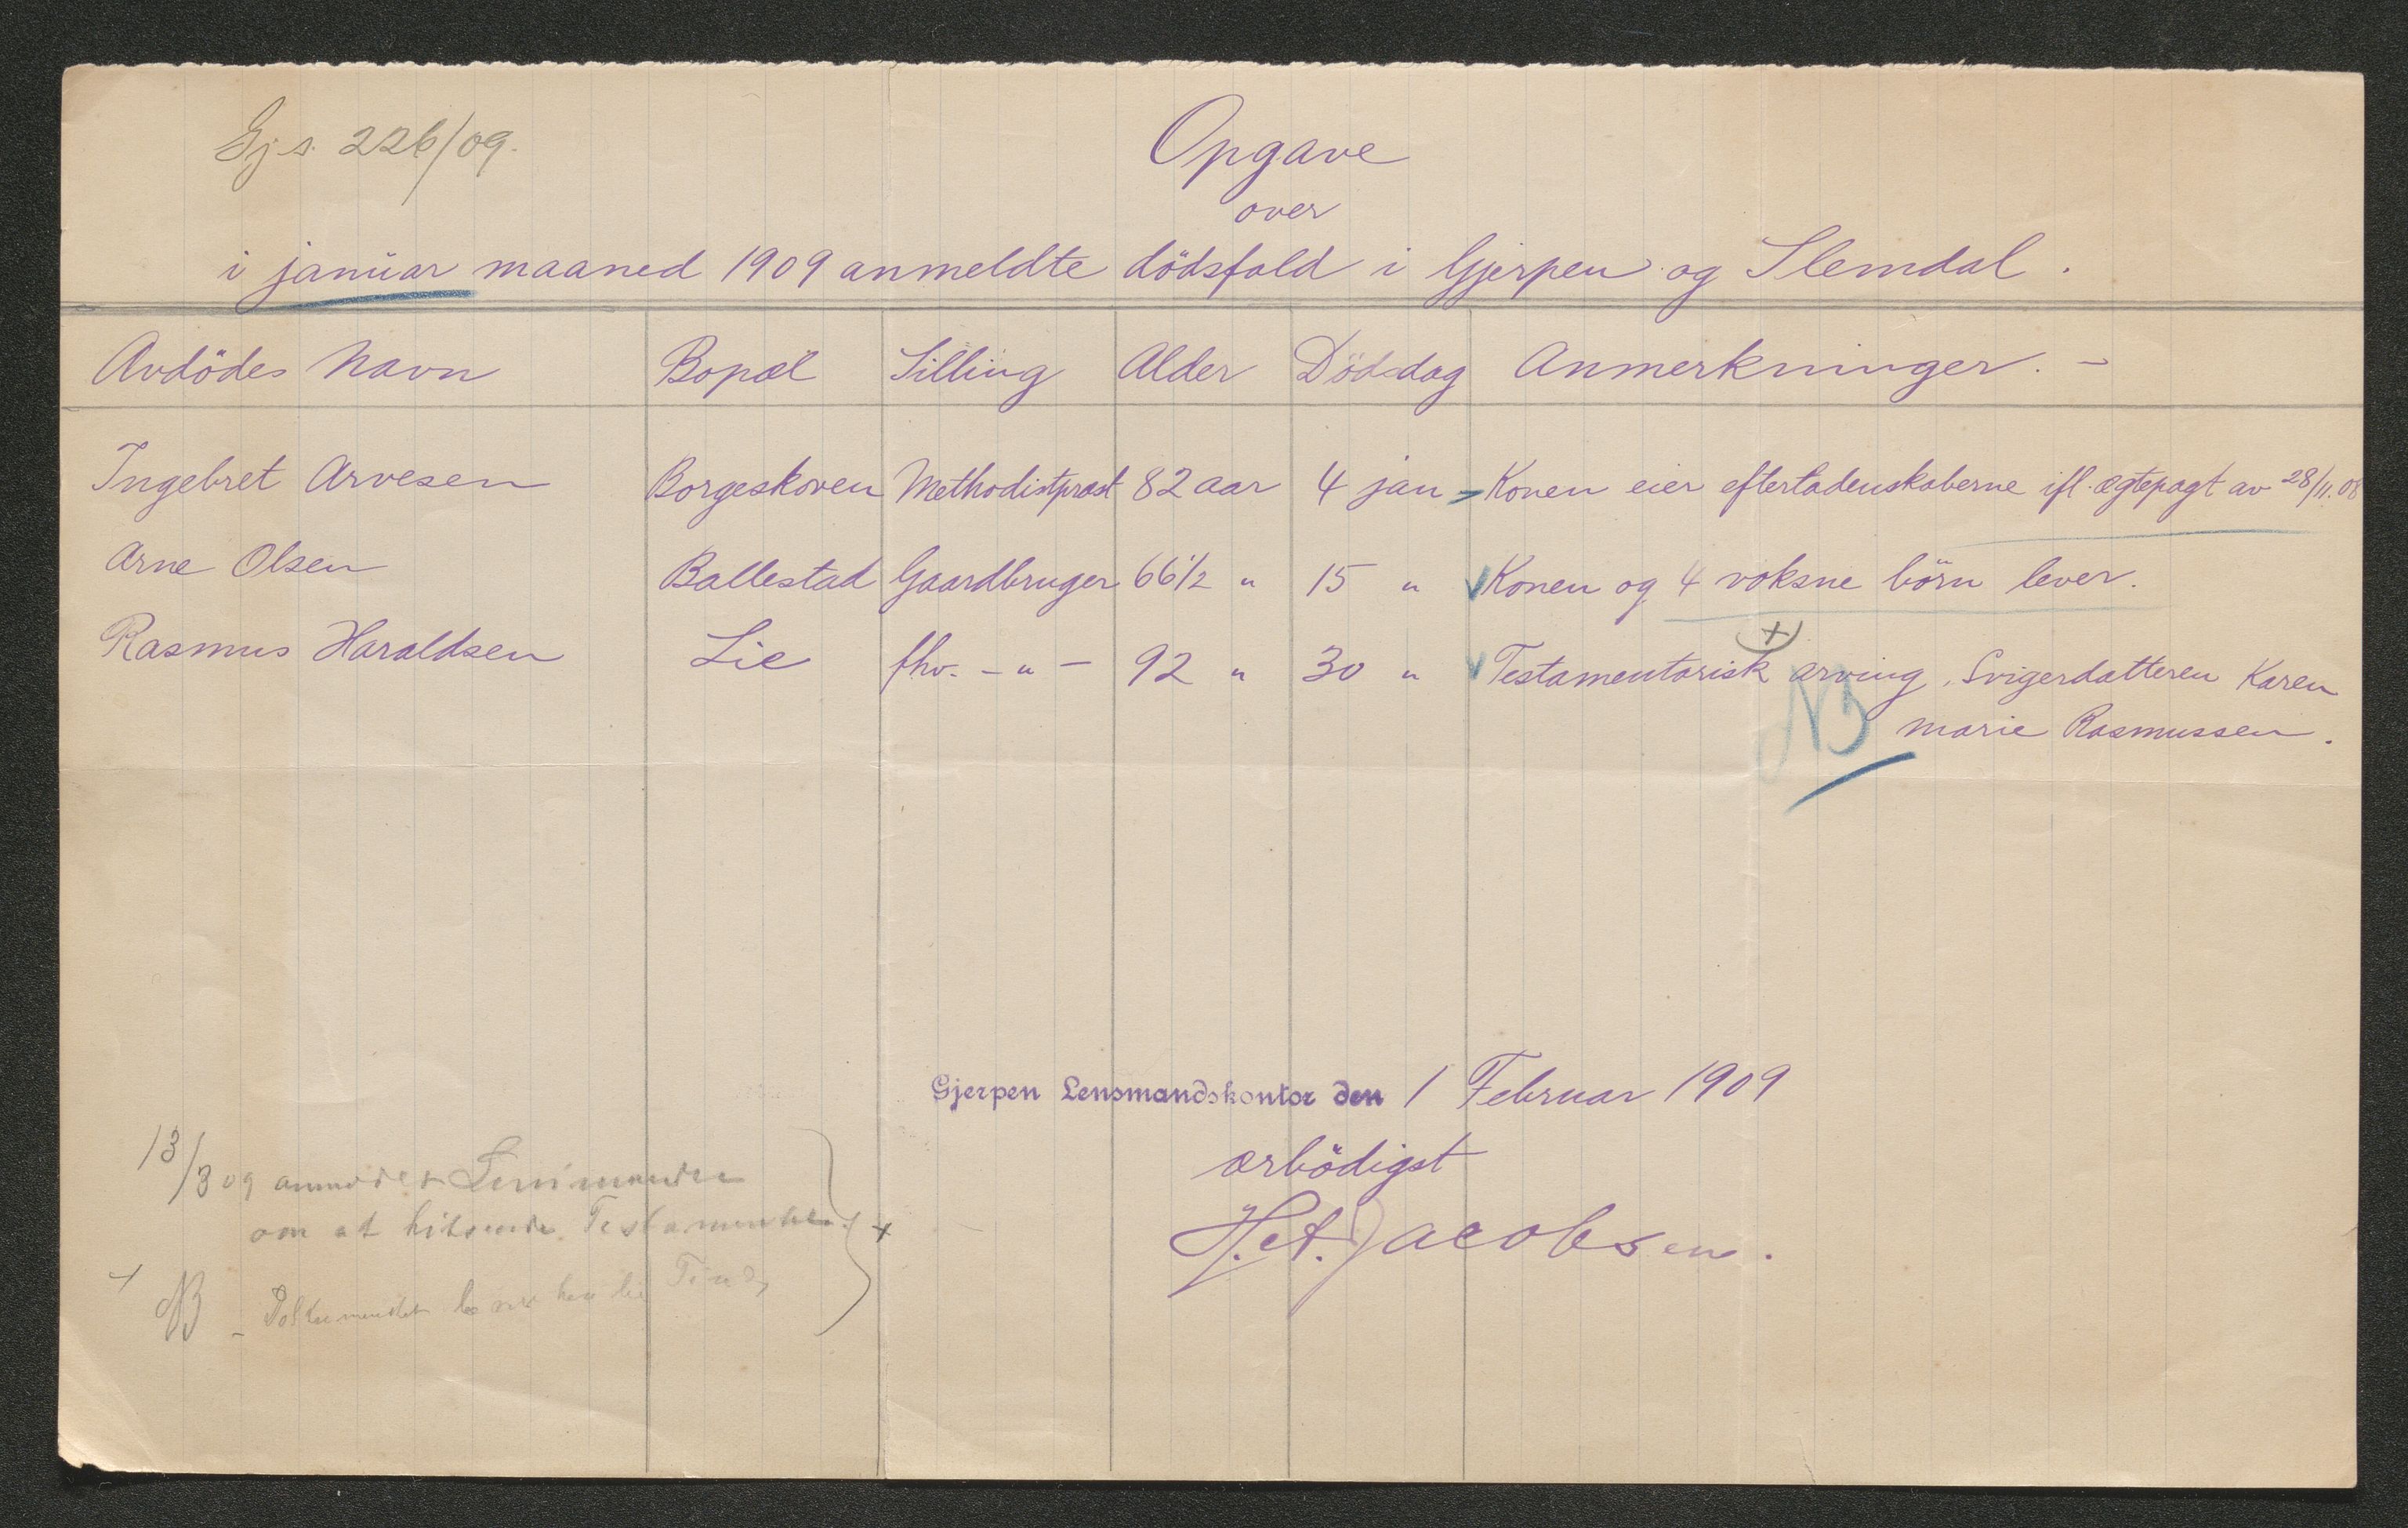 Gj.s. 226/09.
Opgave
over
i januar maaned 1909 anmeldte dödsfald i Gjerpen og Slemdal.
Avdödes Navn Bopæl Stilling Alder Dödsdag Anmerkninger. -
Ingebret Arvesen Borgeskoven Methodistprest 82 aar 4 jan Konen eier efterladenskaberne ifl. ægtepagt av 28/11.08
Arne Olsen Ballestad Gaardbruger 66 1/2 " 15 " Konen og 4 voksne börn lever.
Rasmus Haraldsen Lie fhv. - " - 92 " 30 " Testamentarisk arving, Svigerdatteren Karen
NB Marie Rasmussen.
Gjerpen Lensmandskontor den 1 Februar 1909
ærbödigst
H. A. Jacobsen.
13/3 09 anmodet Lensmanden
om at hitsende Testamentet. +
NB - Testamentet